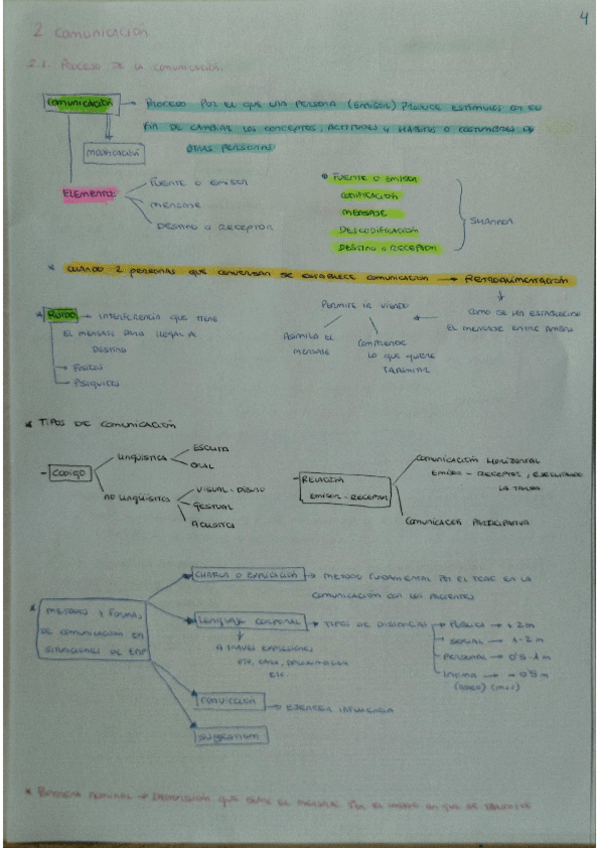 4
2 Comunicación
2.1. Proceso de la comunicación.
Comunicación → Proceso por el que una persona (emisor) produce estímulos en su
fin de cambiar los conceptos, actitudes y hábitos o costumbres de
otras personas
Modificación
Elementos
Fuente o emisor
Mensaje
Destino o receptor
Fuente o emisor
Codificación
Mensaje
Descodificación
Destino o receptor
Shannon
* Cuando 2 personas que conversan se establece comunicación → Retroalimentación
* Ruido → Interferencia que tiene
el mensaje para llegar a
destino
Físicos
Psíquicos
Como se ha establecido
el mensaje entre ambos
Permite ir viendo
Asimila el
mensaje
Comprende
lo que quiere
* Tipos de comunicación
- Código
Lingüística
Escrita
Oral
No lingüística
Visual: Dibujo
Gestual
Acústica
- Relación
emisor - receptor
Comunicación horizontal
emisor - receptor, ejecutando
la tarea
Comunicación participativa
* Métodos y formas
de comunicación en
situaciones de
Charla o explicación → Método fundamental por el
comunicación con los pacientes
Lenguaje corporal → Tipos de distancias
Pública → + 2 m
Social → 1-2 m
Personal → 0'5-1 m
Íntima → - 0'5 m
A través expresiones
etc.
Convicción → Ejercer influencia
Sugestión
* que sufre el mensaje por el medio en que se